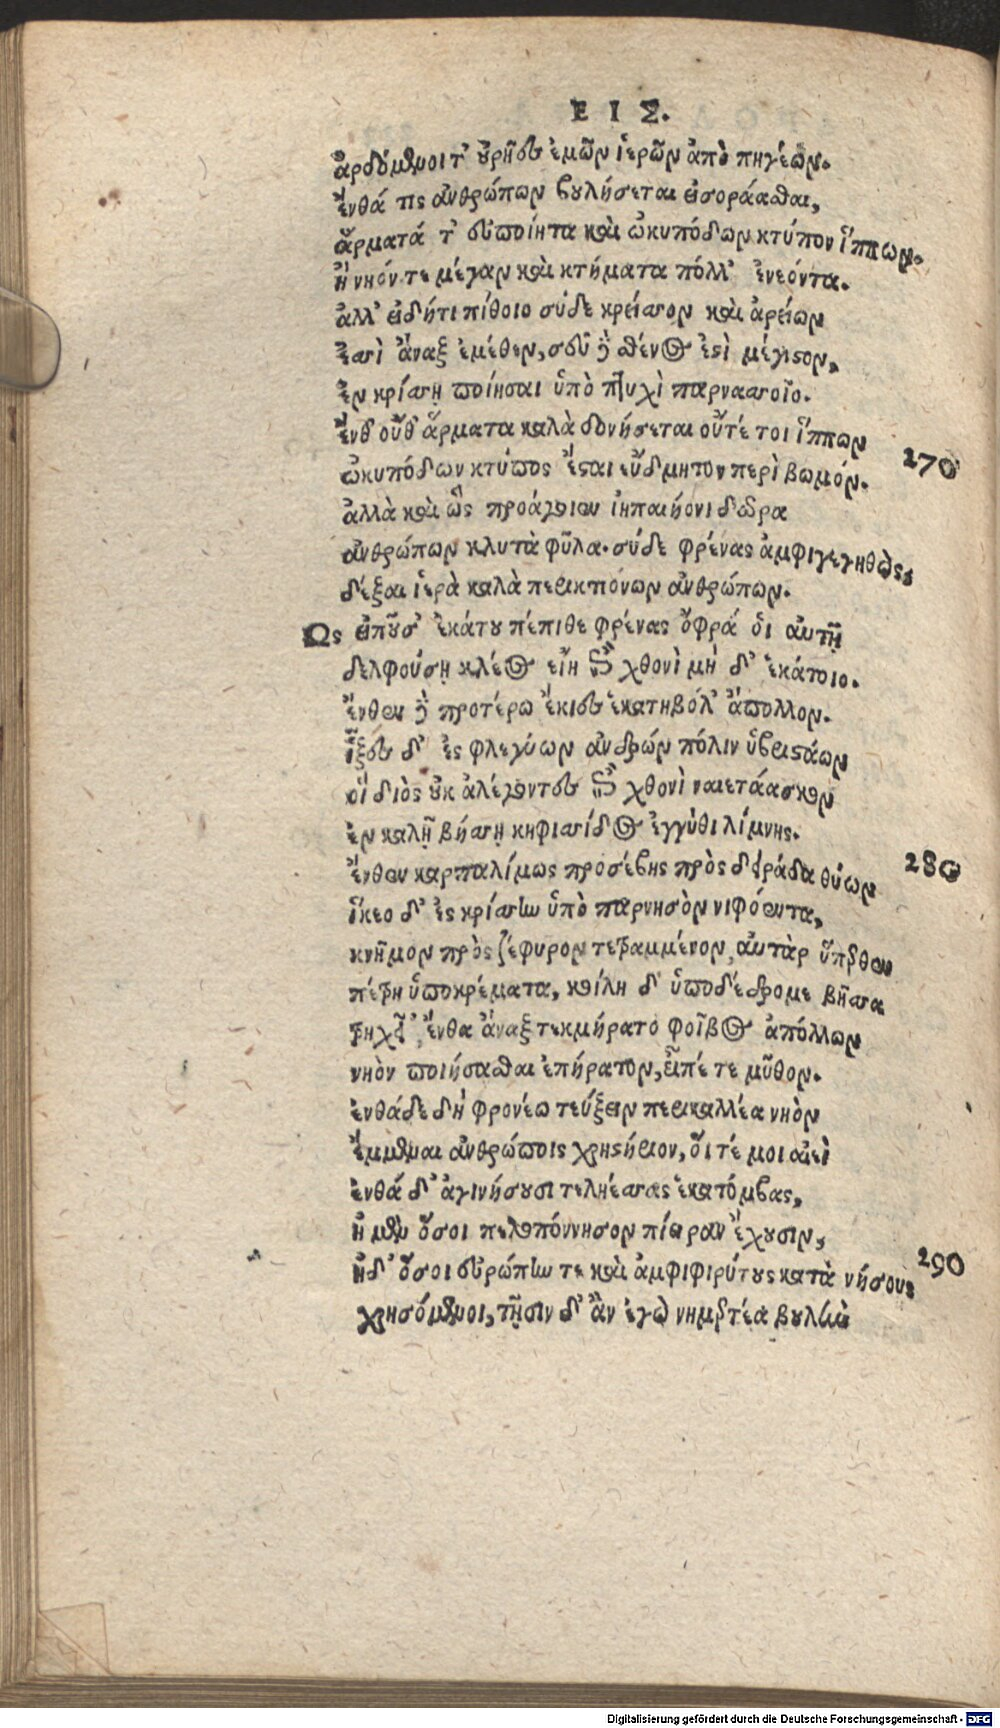 ΕΙΣ.
ἀρδόμενοι τ' οὐρῆες ἐμῶν ἱερῶν ἀπὸ πηγέων.
ἔνθά τις ἀνθρώπων βουλήσεται εἰσοράασθαι,
ἅρματά τ' εὐποίητα καὶ ὠκυπόδων κτύπον ἵππων.
ἢ νηόν τε μέγαν καὶ κτήματα πόλλ' ἐνεόντα.
ἀλλ' εἰ δή τι πίθοιο σύδε κρείσσον καὶ ἀρείων
ἐσσὶ ἄναξ ἐμέθεν, σεῦ δὲ σθένος ἐστὶ μέγιστον,
ἐν κρίσσῃ ποίησαι ὑπὸ πτυχὶ παρνασσοῖο.
ἔνθ' οὔθ' ἅρματα καλὰ δονήσεται οὔτέ τοι ἵππων
270
ὠκυπόδων κτύπος ἔσται εὔδμητον περὶ βωμόν.
ἀλλὰ καὶ ὣς προάγοιεν ἰηπαιήονι δῶρα
ἀνθρώπων κλυτὰ φῦλα. σύδε φρένας ἀμφιγεγηθὼς
δέξαι ἱερὰ καλὰ περικτιόνων ἀνθρώπων.
Ως εἰποῦσ' ἑκάτου πέπιθε φρένας ὄφρά ὁι αὐτῇ
δελφούσῃ κλέος εἴη ἐπὶ χθονὶ μὴ δ' ἑκάτοιο.
ἔνθεν δὲ προτέρω ἔκιες ἑκατηβόλ' ἄπολλον.
ἷξες δ' ἐς φλεγύων ἀνδρών πόλιν ὑβριστάων
οἳ διὸς οὐκ ἀλέγοντες ἐπὶ χθονὶ ναιετάασκον
ἐν καλῇ βήσσῃ κηφισσίδος ἐγγύθι λίμνης.
ἔνθεν καρπαλίμως προσέβης πρὸς δειράδα θύων
280
ἵκεο δ' ἐς κρίσσην ὑπὸ παρνησὸν νιφόεντα,
κνῆμον πρὸς ζέφυρον τετραμμένον, αὐτὰρ ὕπερθεν
πέτρη ὑποκρέματα, κοίλη δ' ὑποδέδρομε βῆσσα
τρηχεῖ' ἔνθα ἄναξ τεκμήρατο φοῖβος ἀπόλλων
νηὸν ποιήσασθαι ἐπήρατον, εἶπέ τε μῦθον.
ἐνθάδε δὴ φρονέω τεύξειν περικαλλέα νηὸν
ἔμμεναι ἀνθρώποις χρηστήριον, οἵ τέ μοι αἰεὶ
ἐνθά δ' ἀγινήσουσι τεληέσσας ἑκατόμβας,
ἠ μὲν ὅσοι πελοπόννησον πίειραν ἔχουσιν,
ἠδ' ὅσοι εὐρώπην τε καὶ ἀμφιφιρύτους κατὰ νήσους
290
χρησόμενοι, τῇσιν δ' ἂν ἐγὼ νημερτέα βουλὴν
Digitalisierung gefördert durch die Deutsche Forschungsgemeinschaft - DFG